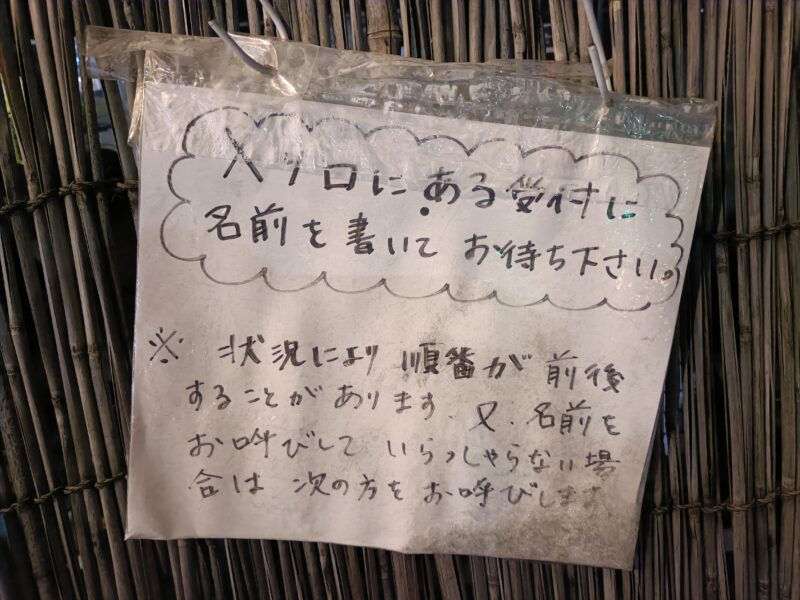 入り口にある受付に
名前を書いてお待ち下さい。
※ 状況により順番が前後
することがあります。又、名前を
お呼びしていらっしゃらない場
合は次の方をお呼びします